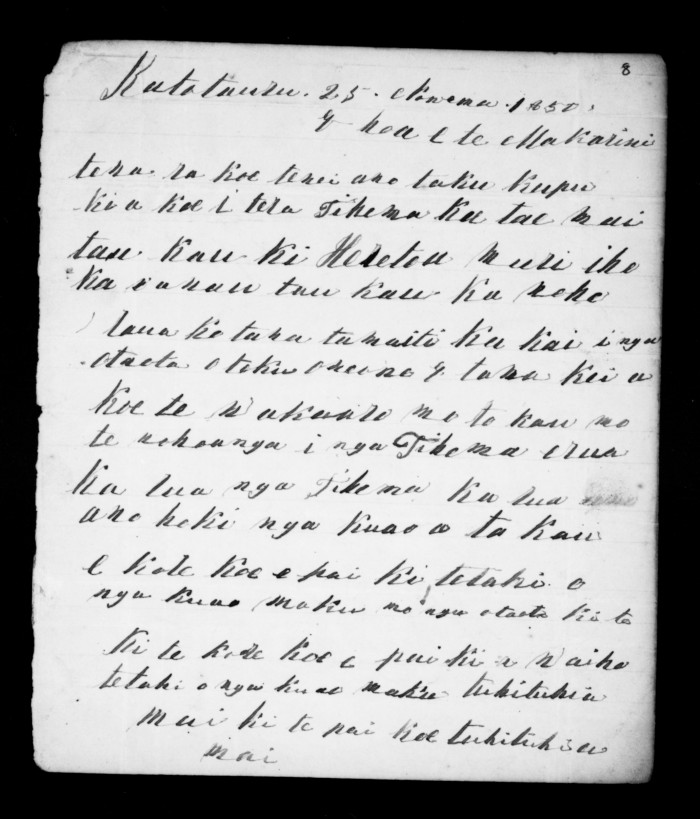 8
Katotauru. 25. Nowema. 1850.
E hoa E te Makarini
tena ra koe tenei ano taku kupu
ki a koe i tera Tihema ka tae mai
tau kau ki Heretoa muri iho
ka eanau tau kau ka noho
raua ko tana tamaiti ka kai i nga
otaota o toku oneone E tama kei a
koe te wakaaro mo to kau mo
te nohoanga i nga Tihema erua
Ka rua nga Tihema Ka rua
ano hoki nga kuao o to kau
E kore koe e pai ki tetahi o
nga kuao maku mo nga otaota ki te
Ki te kore koe e pai ki a waiho
tetahi o nga kuao maku tuhituhia
mai ki te pai koe tuhituhia
mai